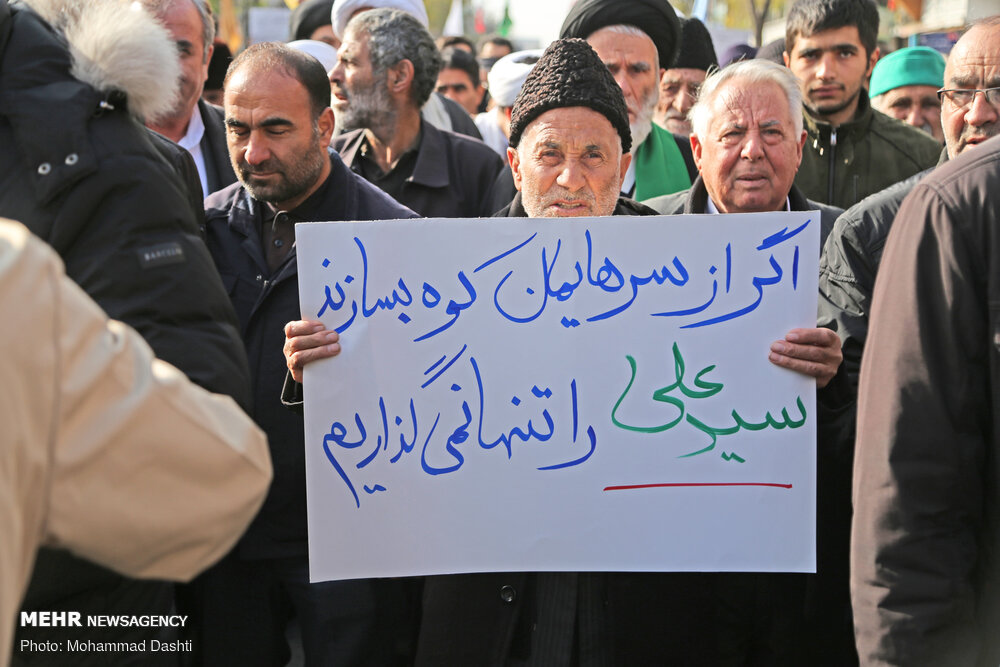 اگر از سرهایمان کوه بسازند
سید علی را تنها نمی گذاریم
MEHR NEWSAGENCY
Photo: Mohammad Dashti